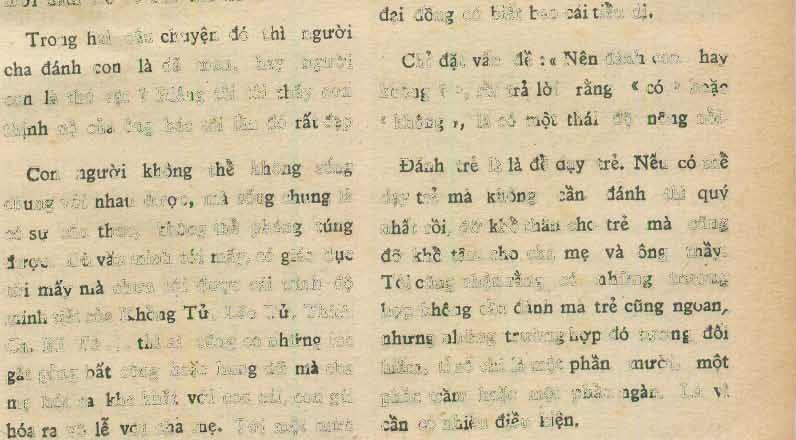 Trong hai câu chuyện đó thì người
cha đánh con là dã man, hay người
con là thú vật ? Riêng tôi tôi thấy cơn
thịnh nộ của ông bác tôi lần đó rất đẹp
Con người không thể không sống
chung với nhau được, mà sống chung là
có sự thể phóng túng
được. Dù văn minh tới mấy, có giáo dục
tới mấy mà chưa tới được cái trình độ
minh triết của Khổng Tử, Lão Tử, Thích
Ca, thì ai cũng có những lúc
bất công hoặc hung dữ mà cha
mẹ hóa ra khe khắt với con cái, con gái
hóra ra vô lễ với cha mẹ. Tới một mức
đại đồng có biết bao cái tiểu dị.
Chỉ đặt vấn đề : « Nên đánh con hay
không ? », rồi trả lời rằng « có » hoặc
« không », là có một thái độ nông nổi.
Đánh trẻ là là để dạy trẻ. Nếu có thể
dạy trẻ mà không cần đánh thì quý
nhất rồi, đỡ khổ thân cho trẻ mà cũng
đỡ khổ tâm cho cha mẹ và ông thầy.
Tôi cũng nhận rằng có những trường
hợp không cần đánh mà trẻ cũng ngoan,
nhưng những trường hợp đó tương đối
hiếm, tỉ số chỉ là một phần mười, một
phần trăm hoặc một phần ngàn. Là vì
cần có nhiều điều kiện.